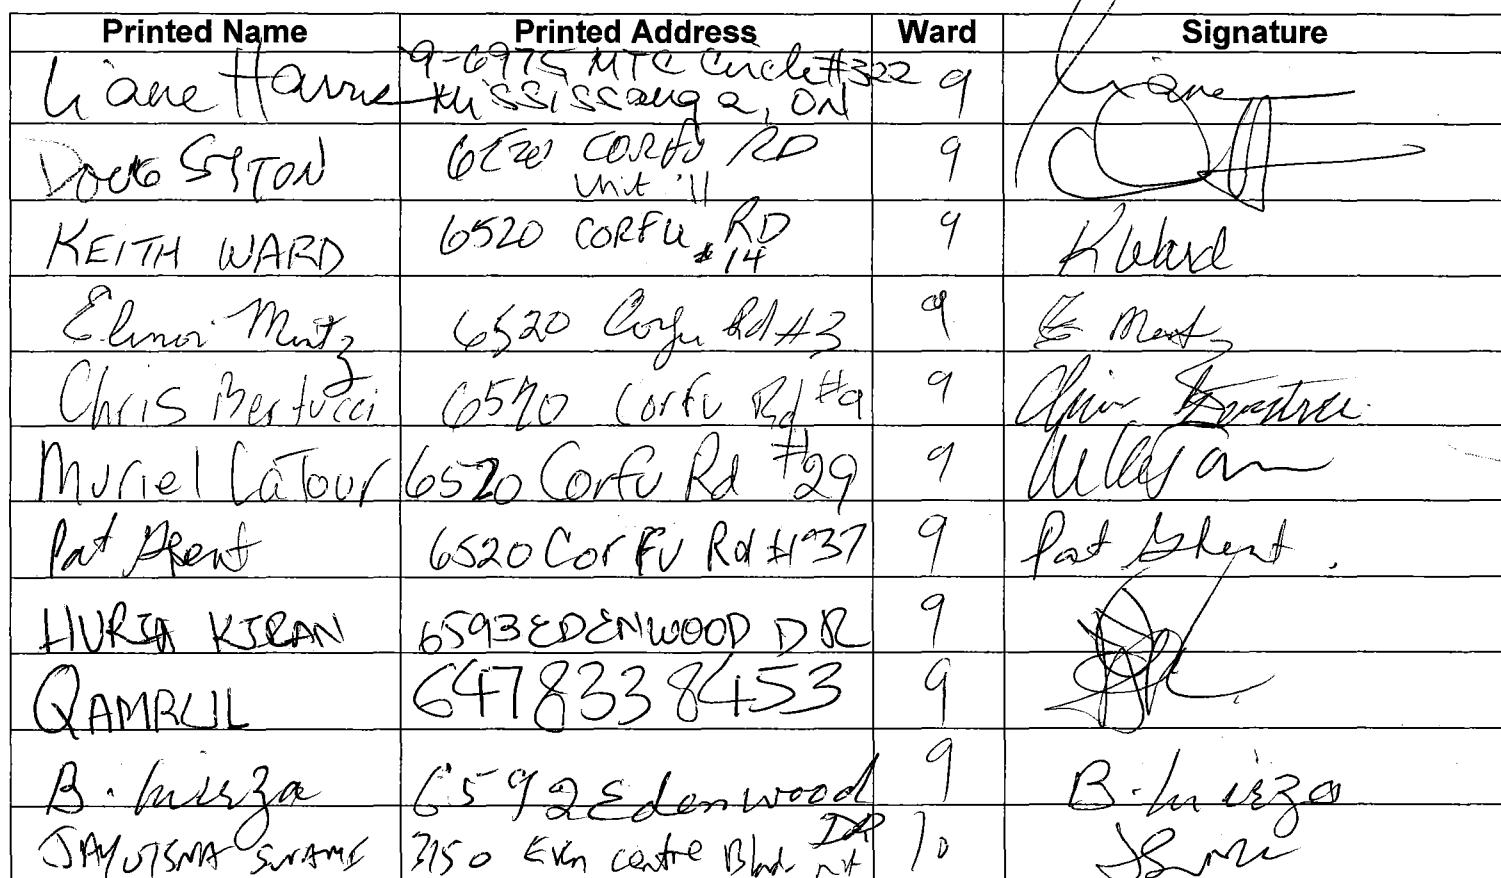 Printed Name Printed Address Ward Signature
Liane Harris 9-6975 MTC Circle #322 9 Liane
Mississauga, ON
Doug 6520 CORFU RD 9
Unit 11
KEITH WARD 6520 CORFU RD 9 K Ward
#14
Elinor Mentz 6520 Corfu Rd #3 9 E Mentz
Chris Bertucci 6520 Corfu Rd #9 9 Chris
Muriel LaTour 6520 Corfu Rd #29 9
Pat Ghent 6520 Corfu Rd #37 9 Pat Ghent.
HURIA KIRAN 6593 EDENWOOD DR 9
QAMRUL 6478338453 9
B. Mirza 6592 Edenwood 9 B. Mirza
DR
3150 centre 10